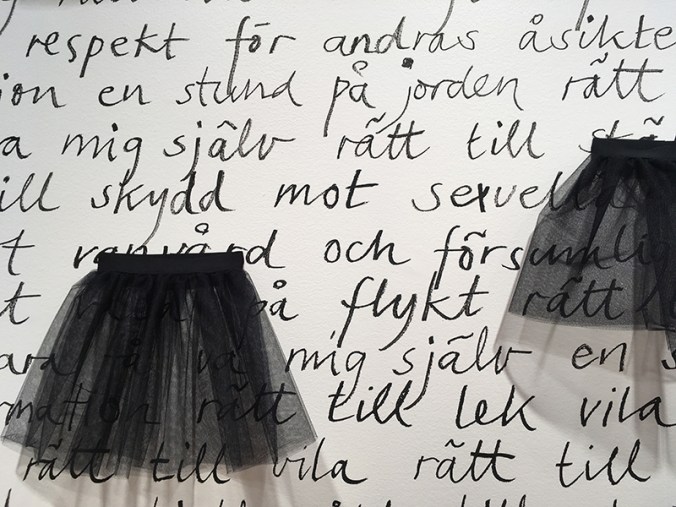 respekt för andras åsikte
ion en stund på jorden rätt
a mig själv rätt till
ill skydd mot sexuella
t vanvård och försumlig
t på flykt rätt
ara få va mig själv en s
rmation rätt till lek vila
rätt till vila rätt till